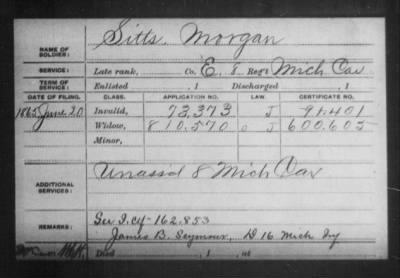 NAME OF SOLDIER: Sitts, Morgan
SERVICE: Late rank, Co. E, 8 Reg't Mich Cav
TERM OF SERVICE: Enlisted , 1 Discharged , 1
DATE OF FILING. CLASS. APPLICATION NO. LAW. CERTIFICATE NO.
1865 June 20 Invalid, 73,373 J 91,401
Widow, 810,570 J 600,605
Minor,
ADDITIONAL SERVICES: Unass'd 8 Mich Cav
REMARKS: See I. Cy-162,853
James B. Seymour, D 16 Mich Inf
Died , 1 , at